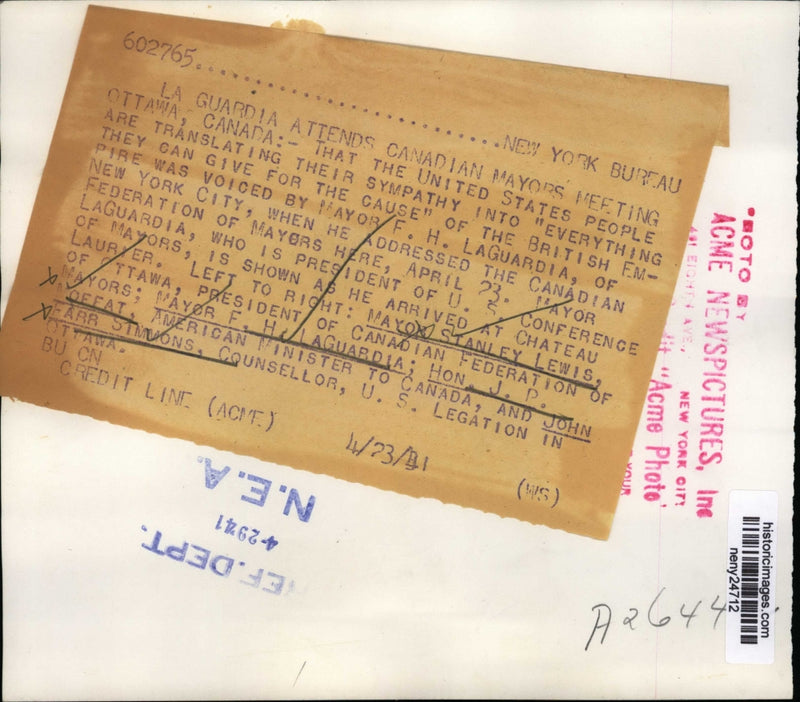 602765..............................NEW YORK BUREAU
LA GUARDIA ATTENDS CANADIAN MAYORS MEETING
OTTAWA, CANADA:- THAT THE UNITED STATES PEOPLE
ARE TRANSLATING THEIR SYMPATHY INTO "EVERYTHING
THEY CAN GIVE FOR THE CAUSE" OF THE BRITISH EM-
PIRE WAS VOICED BY MAYOR F. H. LAGUARDIA, OF
NEW YORK CITY, WHEN HE ADDRESSED THE CANADIAN
FEDERATION OF MAYORS HERE, APRIL 23. MAYOR
LAGUARDIA, WHO IS PRESIDENT OF U. S. CONFERENCE
OF MAYORS, IS SHOWN AS HE ARRIVED AT CHATEAU
LAURIER. LEFT TO RIGHT: MAYOR STANLEY LEWIS,
OF OTTAWA, PRESIDENT OF CANADIAN FEDERATION OF
MAYORS; MAYOR F. H. LAGUARDIA; HON. J. P.
MOFFAT, AMERICAN MINISTER TO CANADA, AND JOHN
FARR SIMMONS, COUNSELLOR, U. S. LEGATION IN
OTTAWA.
BU CN
CREDIT LINE (ACME) 4/23/41 (WS)
PHOTO BY
ACME NEWSPICTURES, Inc
EIGHTH AVE., NEW YORK CITY
"Acme Photo"
YOUR
N.E.A.
4-2941
REF. DEPT.
A2644
historicimages.com
neny24712